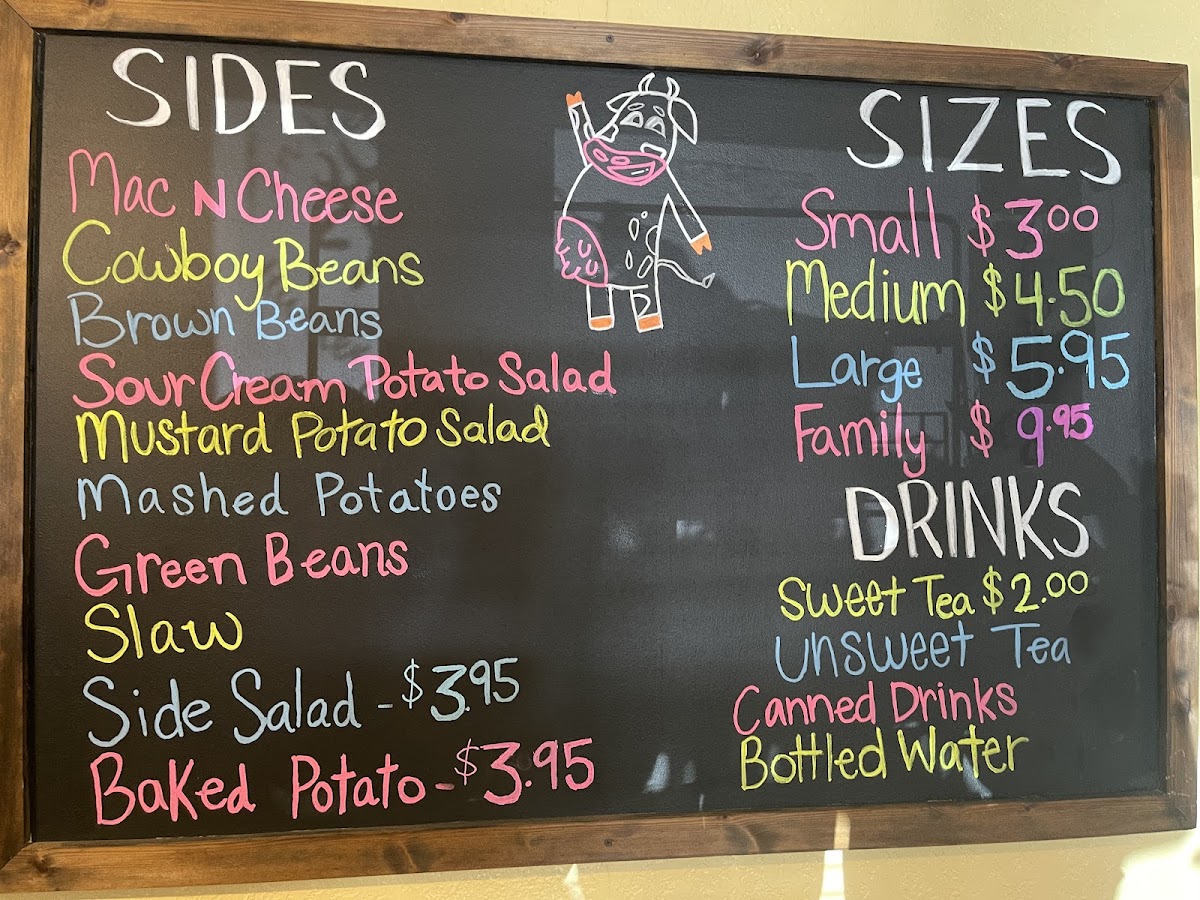 SIDES
Mac N Cheese
Cowboy Beans
Brown Beans
Sour Cream Potato Salad
Mustard Potato Salad
Mashed Potatoes
Green Beans
Slaw
Side Salad - $3.95
Baked Potato - $3.95
SIZES
Small $3.00
Medium $4.50
Large $5.95
Family $9.95
DRINKS
Sweet Tea $2.00
Unsweet Tea
Canned Drinks
Bottled Water